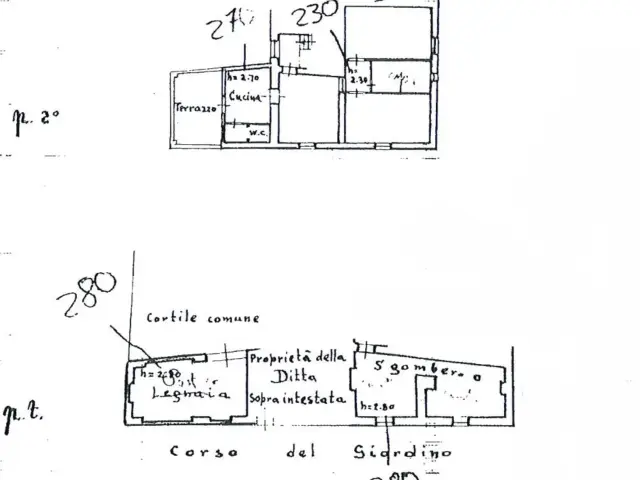 270
230
h= 2.70
h=
2.30
Cucina
Terrazzo
w.c.
p. 2°
280
Cortile comune
Proprietà della
Ditta
Sopraintestata
h=2.80
Legnaia
Sgombero
h=2.80
p.t.
Corso del Giardino